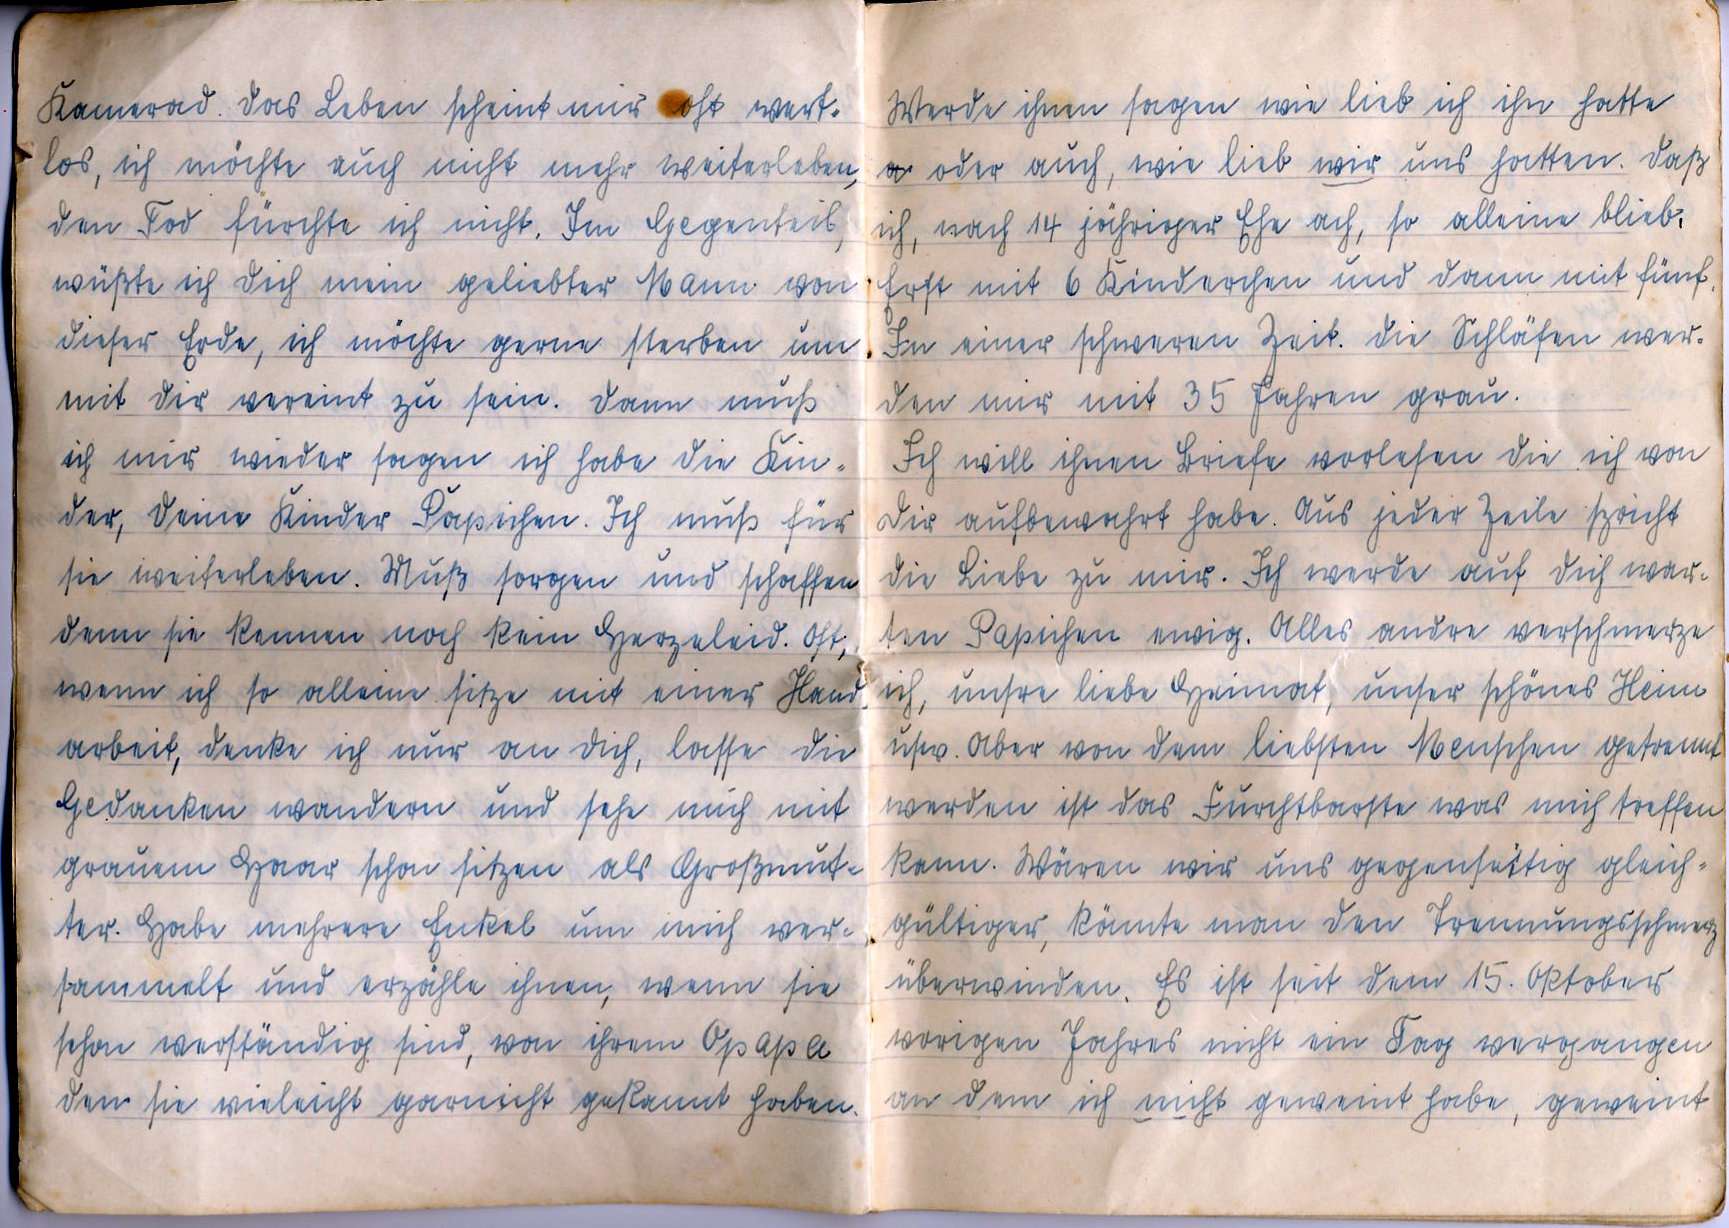 Kamerad. Das Leben scheint mir oft wert-
los, ich möchte auch nicht mehr weiterleben,
den Tod fürchte ich nicht. Im Gegenteil,
wüßte ich Dich mein geliebter Mann von
dieser Erde, ich möchte gerne sterben um
mit Dir vereint zu sein. Dann muß
ich mir wieder sagen ich habe die Kin-
der, Deine Kinder Papichen. Ich muß für
sie weiterleben. Muß sorgen und schaffen
denn sie kennen noch kein Herzeleid. Oft,
wenn ich so alleine sitze mit einer Hand-
arbeit, denke ich nur an Dich, lasse die
Gedanken wandern und sehe mich mit
grauem Haar schon sitzen als Großmut-
ter. Habe mehrere Enkel um mich ver-
sammelt und erzähle ihnen, wenn sie
schon verständig sind, von ihrem Opapa
den sie vieleicht garnicht gekannt haben.
Werde ihnen sagen wie lieb ich ihn hatte
oder auch, wie lieb wir uns hatten. Daß
ich, nach 14 jähriger Ehe ach, so alleine blieb.
Erst mit 6 Kinderchen und dann mit fünf.
In einer schweren Zeit. Die Schläfen wer-
den mir mit 35 Jahren grau.
Ich will ihnen Briefe vorlesen die ich von
Dir aufbewahrt habe. Aus jeder Zeile spricht
die Liebe zu mir. Ich werde auf Dich war-
ten Papichen ewig. Alles andre verschmerze
ich, unsre liebe Heimat, unser schönes Heim
usw. Aber von dem liebsten Menschen getrennt
werden ist das Furchtbarste was mich treffen
kann. Wären wir uns gegenseitig gleich-
gültiger, könnte man den Trennungsschmerz
überwinden. Es ist seit dem 15. Oktober
vorigen Jahres nicht ein Tag vergangen
an dem ich nicht geweint habe, geweint